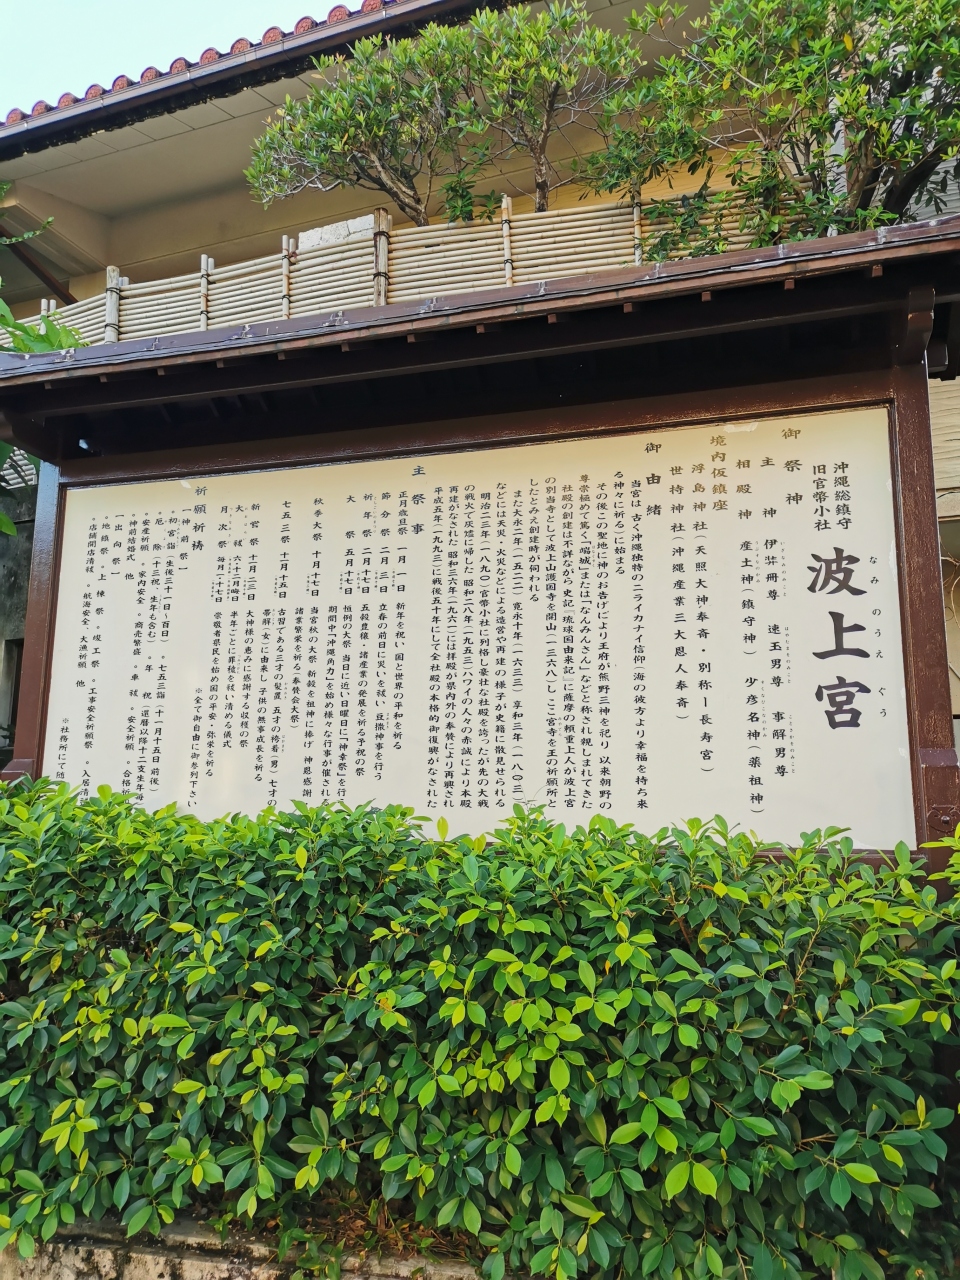 沖縄総鎮守
旧官幣小社
波上宮
なみのうえぐう
御祭神
主神 伊弉冊尊 速玉男尊 事解男尊
相殿神 産土神(鎮守神) 少彦名神(薬祖神)
境内仮鎮座
浮島神社(天照大神奉斎・別称ー長寿宮)
世持神社(沖縄産業三大恩人奉斎)
御由緒
当宮は 古く沖縄独特のニライカナイ信仰(海の彼方より幸福を持ち来
る神々に祈る)に始まる
その後この聖地に神のお告げにより王府が熊野三神を祀り 以来朝野の
尊崇極めて篤く「端城」または「なんみんさん」などと称され親しまれてきた
社殿の創建は不詳ながら史記『琉球国由来記』に薩摩の頼重上人が波上宮
の別当寺として波上山護国寺を開山(一三六八)し、ここ宮寺を王の祈願所と
したとみえ創建時が伺われる
また大永二年(一五二二) 寛永十年(一六三三) 享和三年(一八〇三)
などには天災、火災などによる造営や再建の様子が史籍に散見せられる
明治二三年(一八九〇)官幣小社に列格し豪壮な社殿を誇ったが先の大戦
の戦火で灰燼に帰した 昭和二八年(一九五三)ハワイの人々の赤誠により本殿
再建がなされた 昭和三六年(一九六一)には拝殿が県内外の奉賛により再興され
平成五年(一九九三)に戦後五十年にして全社殿の本格的御復興がなされた
主祭事
正月歳旦祭 一月一日 新年を祝い国と世界の平和を祈る
節分祭 二月三日 立春の前日に災いを祓い 豆撒神事を行う
祈年祭 二月十七日 五穀豊穣・諸産業の発展を祈る予祝の祭
大祭 五月十七日 恒例の大祭 当日に近い日曜日に「神幸祭」を行
期間中「沖縄角力」を始め様々な行事が催される
秋季大祭 十月十七日 当宮秋の大祭 新穀を祖神に捧げ 神恩感謝
諸業繁栄を祈る(奉賛会大祭)
七五三祭 十一月十五日 古習である三才の髪置 五才の袴着(男)七才の
帯解(女)に由来し 子供の無事成長を祈る
新嘗祭 十一月二三日 大神様の恵みに感謝する収穫の祭
大祓 六・十二月晦日 半年ごとに罪穢を祓い清める儀式
月次祭 毎月一・十七日 崇敬者県民を始め国の平安・弥栄を祈る
※全て御自由に御参列下さい
祈願祈祷
【神前祭】
。初宮詣(生後三十一日〜百日) 。七五三詣(十一月十五日前後)
。厄除(十三祝、生年も含む) 。年祝(還暦以降十二支生年毎
。安産祈願 。家内安全 。商売繁盛 。車祓 。安全祈願 。合格祈
。神前結婚式 他
【出向】
。地鎮祭 。上棟祭 。竣工祭 。工事安全祈願祭 。入居清
。店舗開店清祓 。航海安全、大漁祈願 他
※社務所にて随